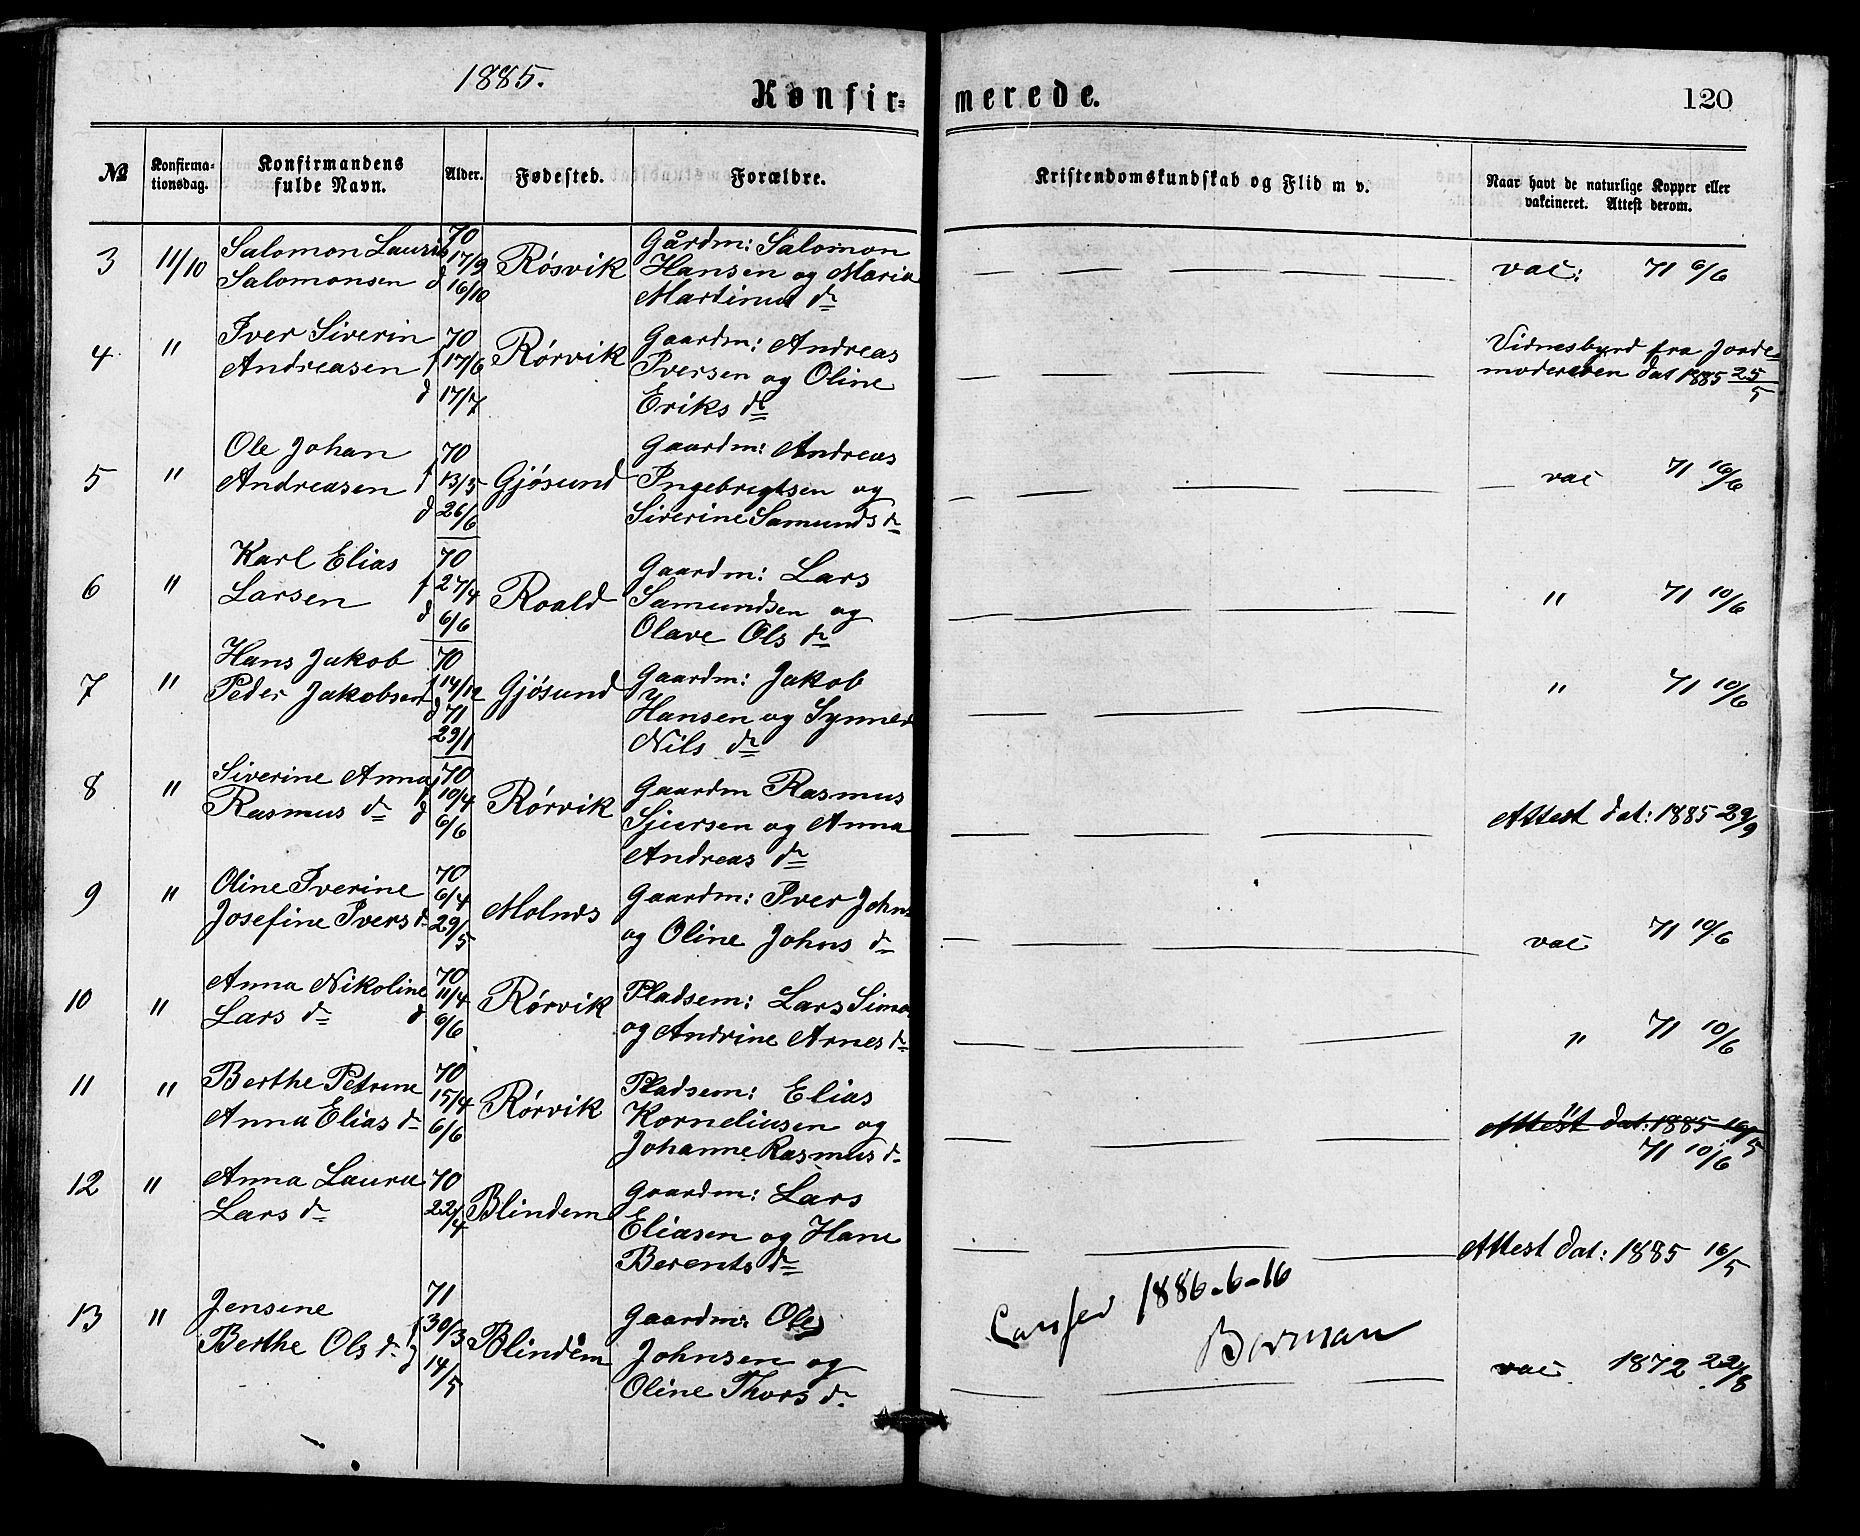 1885.
Konfir=
merede.
120
№
Konfirma-
tionsdag.
Konfirmandens
fulde Navn.
Alder.
Fødested.
Forældre.
Kristendomskundskab og Flid m v.
Naar havt de naturlige Kopper eller
vakcineret. Attest derom.
3 11/10 Salomon Laurits
Salomonsen
70
17/9
d 16/10
Røsvik
Gårdm: Salomon
Hansen og Maria
Martinus dr
vac: 71 6/6
4 " Iver Siverin
Andreasen
70
f 17/6
d 17/7
Rørvik
Gaardm: Andreas
Iversen og Oline
Eriks dr
Vidnesbyrd fra Jorde-
moderen dat 1885 25/5
5 " Ole Johan
Andreasen
70
f 13/5
d 26/6
Gjøsund
Gaardm: Andreas
Ingebrigtsen og
Siverine Samunds dr
vac 71 16/6
6 " Karl Elias
Larsen
70
f 27/4
d 6/6
Roald
Gaardm: Lars
Samundsen og
Olave Ols dr
" 71 10/6
7 " Hans Jakob
Peder Jakobsen
70
f 14/12
d 71
29/1
Gjøsund
Gaardm: Jakob
Hansen og Synneve
Nils dr
" 71 10/6
8 " Siverine Anna
Rasmus dr
70
f 10/4
d 6/6
Rørvik
Gaardm Rasmus
Sjursen og Anna
Andreas dr
Attest dat: 1885 29/9
9 " Oline Iverine
Josefine Ivers dr
70
6/4
29/5
Molnes
Gaardm: Iver Johns
og Oline Johns dr
vac 71 10/6
10 " Anna Nikoline
Lars dr
70
11/4
d 6/6
Rørvik
Pladsem: Lars Simo
og Andrine Arnes dr
" 71 10/6
11 " Berthe Petrine
Anna Elias dr
70
15/4
6/6
Rørvik
Pladsem: Elias
Korneliusen og
Johanne Rasmus dr
"
Attest dat: 1885 16/5
71 10/6
12 " Anna Laura
Lars dr
70
22/4
Blindem
Gaardm: Lars
Eliasen og Hane
Berents dr
Attest dat: 1885 16/5
13 " Jensine
Berthe Ols dr
71
f 30/3
d 14/5
Blindem
Gaardm: Ole
Johnsen og
Oline Thors dr
1886-6-16
vac 1872 22/8